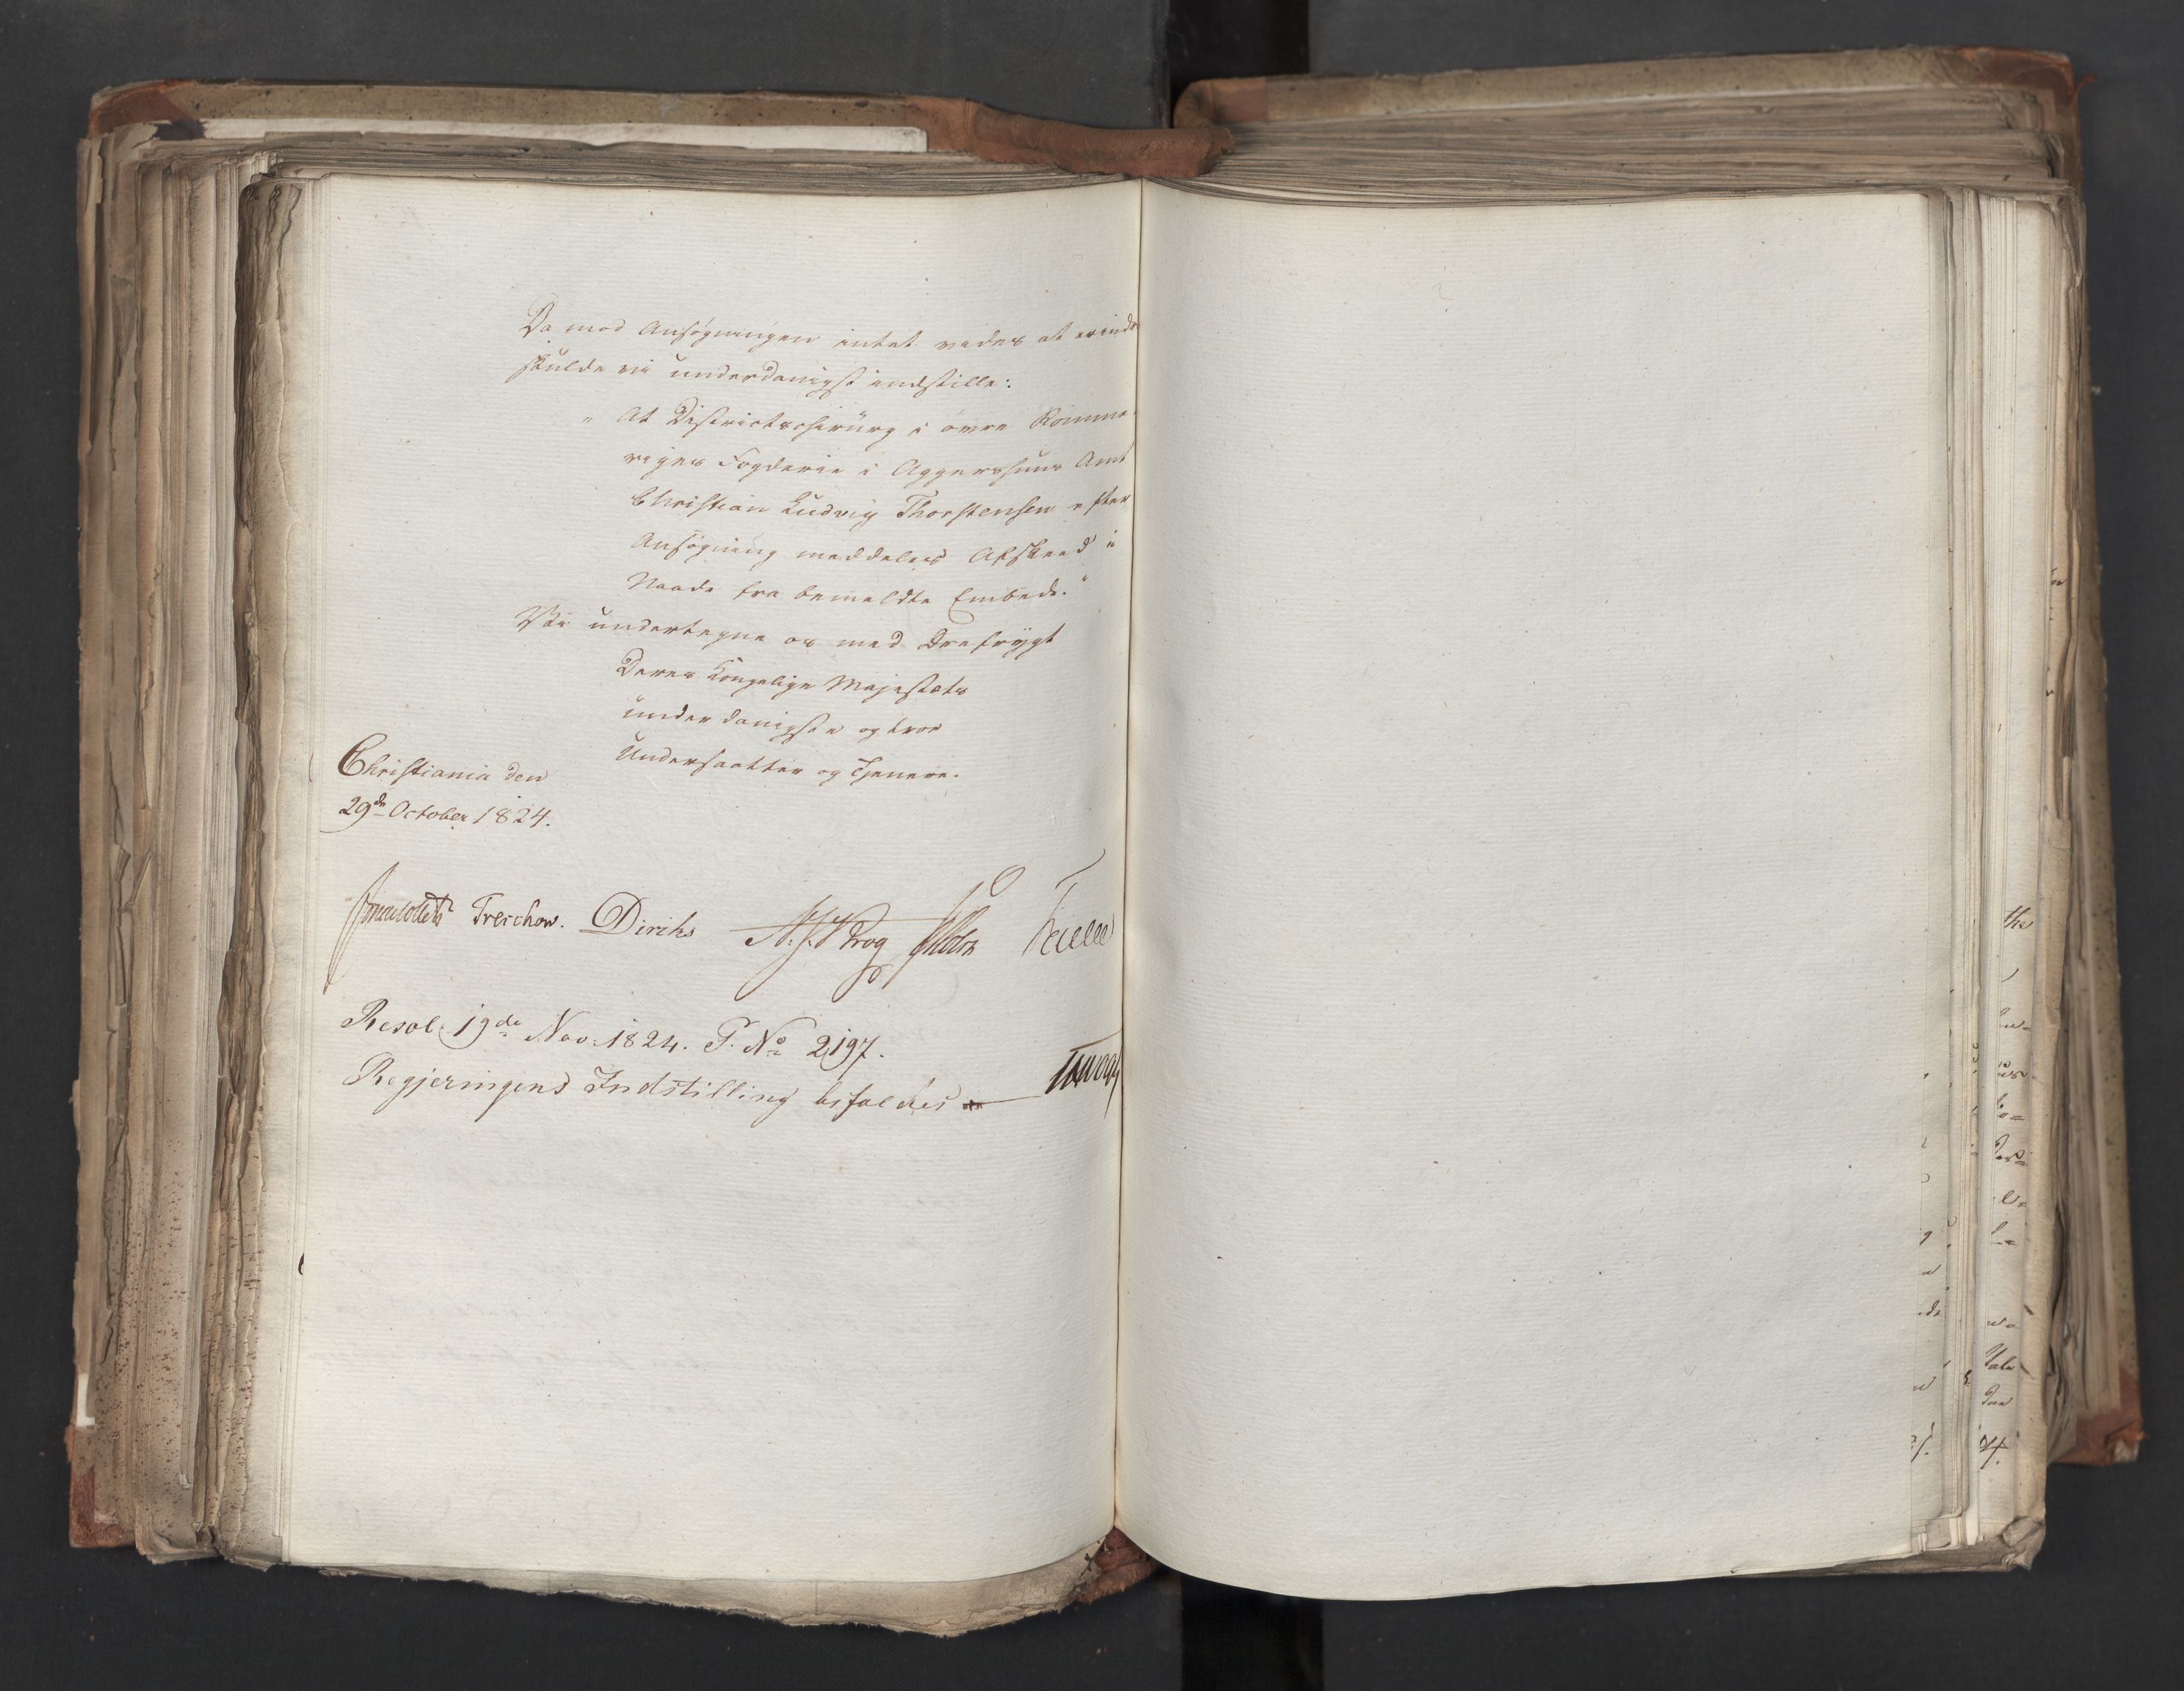 Da mod Ansøgningen intet vides at erindr
skulde vi underdanigst indstille:
" At Districtschirurg i øvre Romme
riges Fogderie i Aggershuus Amt
Christian Ludvig Thorstensen efter
Ansøgning meddeles Afskeed i
Naade fra bemeldte Embede."
Vi undertegne os med Ærefrygt
Deres Kongelige Majestæts
underdanigste og troe
Undersaatter og Tjenere.
Christiania den
29de October 1824.
Treschow. Diriks N. J. Krog
Resol. 19de Nov. 1824. P. No 2,197.
Regjeringens Indstilling bifaldes
the